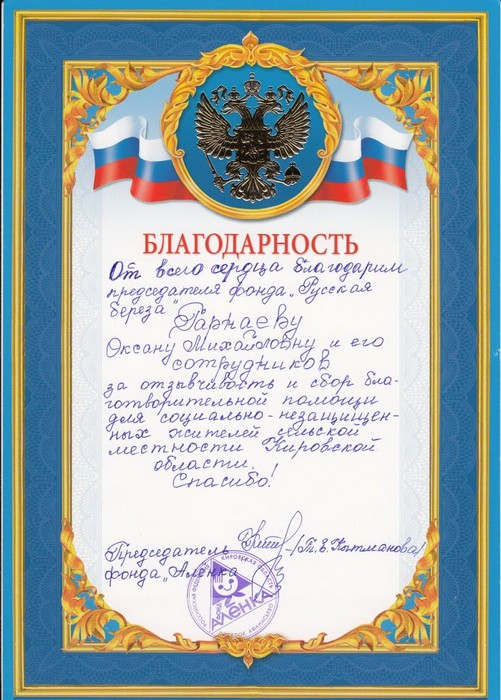 БЛАГОДАРНОСТЬ
От всего сердца благодарим
председателя фонда „Русская
береза"
Гарнаеву
Оксану Михайловну и его
сотрудников
за отзывчивость и сбор бла-
готворительной помощи
для социально-незащищен-
ных жителей сельской
местности Кировской
области.
Спасибо!
Председатель (Т.В. Кытманова)
фонда „Аленка"
АЛЁНКА